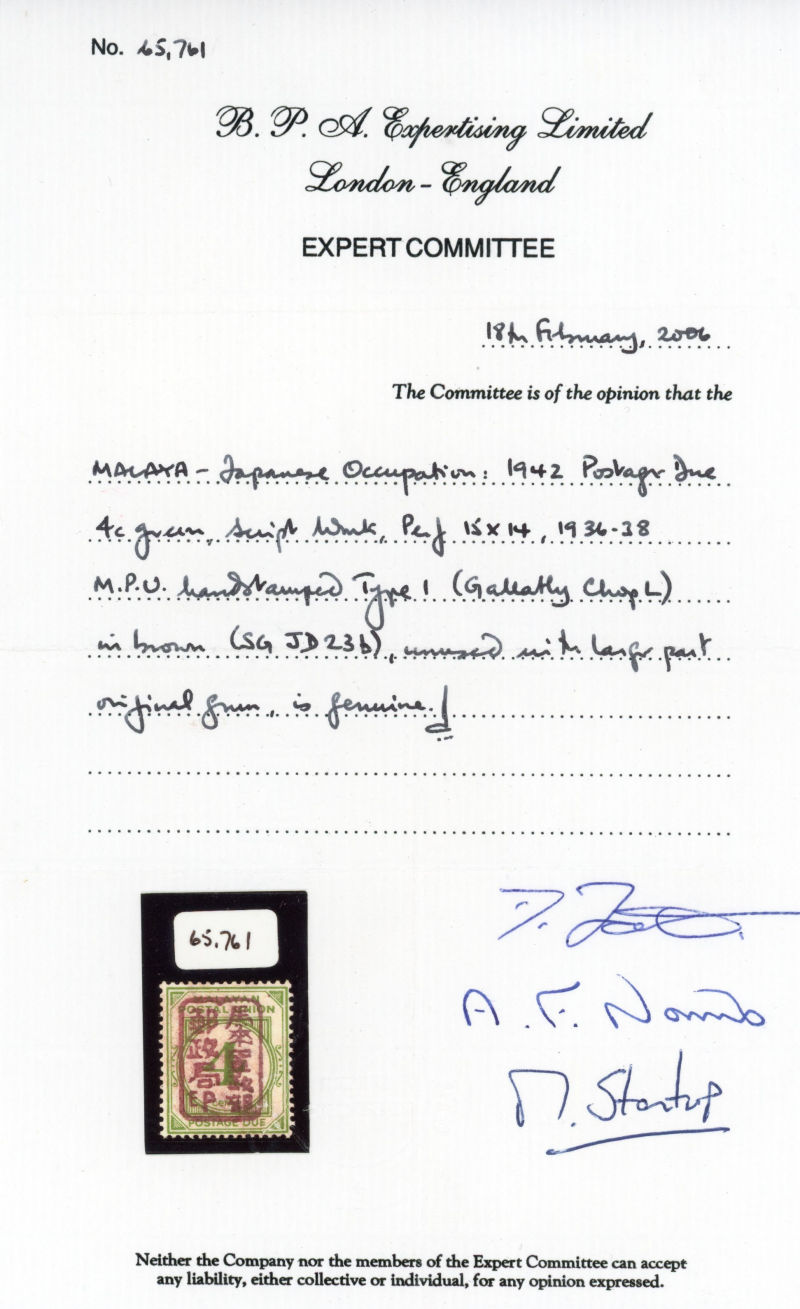 No. 65,761
B. P. A. Expertising Limited
London - England
EXPERT COMMITTEE
18th February, 2006
The Committee is of the opinion that the
MALAYA - Japanese Occupation: 1942 Postage Due
4c green, Script Wmk, Perf 15x14, 1936-38
M.P.U. handstamped Type 1 (Gallatly Chop L)
in brown (SG JD23b), unused with large part
original gum, is genuine.
65,761
MALAYAN
POSTAL UNION
4
POSTAGE DUE
郵政局
A. F. Norris
M. Startup
Neither the Company nor the members of the Expert Committee can accept
any liability, either collective or individual, for any opinion expressed.